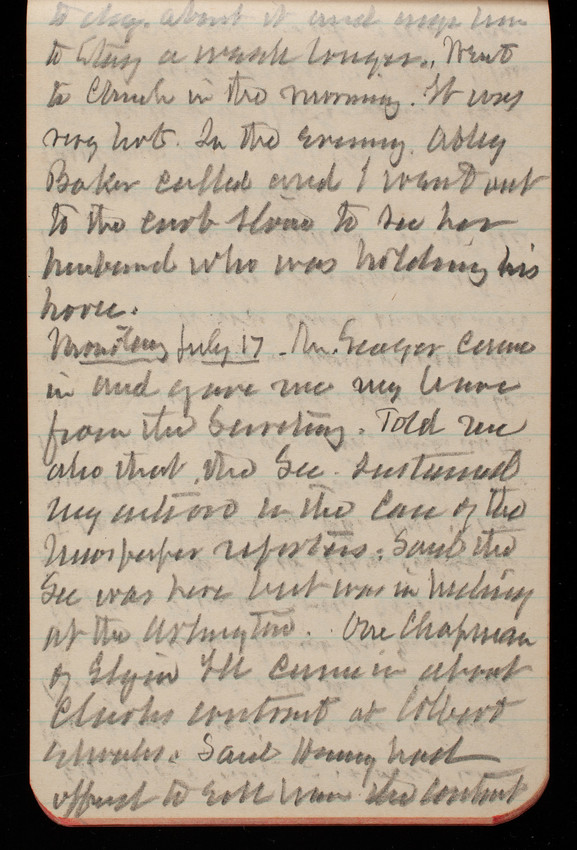 to day about it and urge him
to stay a week longer. Went
to Church in the morning. It was
very hot. In the evening Abby
Baker called and I went out
to the curb stone to see her
husband who was holding his
horse.
Monday July 17. Mr. Seager came
in and gave me my leave
from the Secretary. Told me
also that the Sec. sustained
my action in the Case of the
Newspaper reporters. Said the
Sec was here but was in hiding
at the Arlington. One Chapman
of Elgin Ill came in about
Clarks contract at Colbert
schools. Said Henry had
offered to sell him the contract